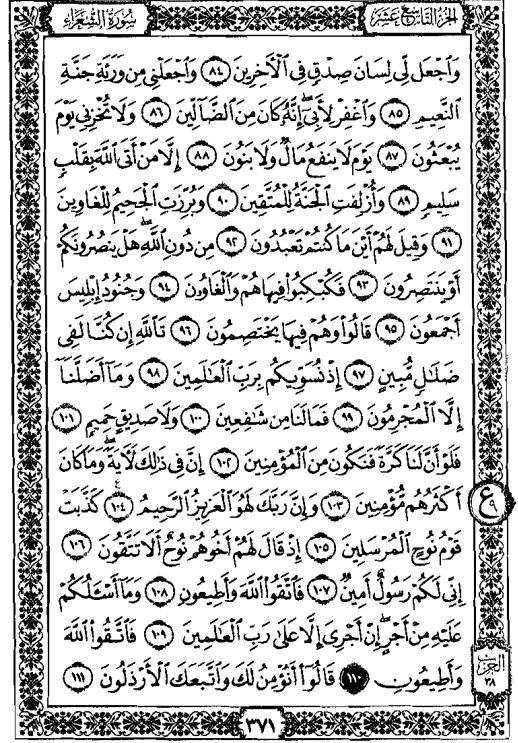 سُورَةُ الشُّعَرَاءِ
الجزء التاسع عشر
وَٱجۡعَل لِّي لِسَانَ صِدۡقٖ فِي ٱلۡأٓخِرِينَ ٨٤ وَٱجۡعَلۡنِي مِن وَرَثَةِ جَنَّةِ
ٱلنَّعِيمِ ٨٥ وَٱغۡفِرۡ لِأَبِيٓ إِنَّهُۥ كَانَ مِنَ ٱلضَّآلِّينَ ٨٦ وَلَا تُخۡزِنِي يَوۡمَ
يُبۡعَثُونَ ٨٧ يَوۡمَ لَا يَنفَعُ مَالٞ وَلَا بَنُونَ ٨٨ إِلَّا مَنۡ أَتَى ٱللَّهَ بِقَلۡبٖ
سَلِيمٖ ٨٩ وَأُزۡلِفَتِ ٱلۡجَنَّةُ لِلۡمُتَّقِينَ ٩٠ وَبُرِّزَتِ ٱلۡجَحِيمُ لِلۡغَاوِينَ
٩١ وَقِيلَ لَهُمۡ أَيۡنَ مَا كُنتُمۡ تَعۡبُدُونَ ٩٢ مِن دُونِ ٱللَّهِ هَلۡ يَنصُرُونَكُمۡ
أَوۡ يَنتَصِرُونَ ٩٣ فَكُبۡكِبُواْ فِيهَا هُمۡ وَٱلۡغَاوُۥنَ ٩٤ وَجُنُودُ إِبۡلِيسَ
أَجۡمَعُونَ ٩٥ قَالُواْ وَهُمۡ فِيهَا يَخۡتَصِمُونَ ٩٦ تَٱللَّهِ إِن كُنَّا لَفِي
ضَلَٰلٖ مُّبِينٍ ٩٧ إِذۡ نُسَوِّيكُم بِرَبِّ ٱلۡعَٰلَمِينَ ٩٨ وَمَآ أَضَلَّنَآ
إِلَّا ٱلۡمُجۡرِمُونَ ٩٩ فَمَا لَنَا مِن شَٰفِعِينَ ١٠٠ وَلَا صَدِيقٍ حَمِيمٖ ١٠١
فَلَوۡ أَنَّ لَنَا كَرَّةٗ فَنَكُونَ مِنَ ٱلۡمُؤۡمِنِينَ ١٠٢ إِنَّ فِي ذَٰلِكَ لَأٓيَةٗ وَمَا كَانَ
أَكۡثَرُهُم مُّؤۡمِنِينَ ١٠٣ وَإِنَّ رَبَّكَ لَهُوَ ٱلۡعَزِيزُ ٱلرَّحِيمُ ١٠٤ كَذَّبَتۡ
ع ٩
قَوۡمُ نُوحٍ ٱلۡمُرۡسَلِينَ ١٠٥ إِذۡ قَالَ لَهُمۡ أَخُوهُمۡ نُوحٌ أَلَا تَتَّقُونَ ١٠٦
إِنِّي لَكُمۡ رَسُولٌ أَمِينٞ ١٠٧ فَٱتَّقُواْ ٱللَّهَ وَأَطِيعُونِ ١٠٨ وَمَآ أَسۡـَٔلُكُمۡ
عَلَيۡهِ مِنۡ أَجۡرٍۖ إِنۡ أَجۡرِيَ إِلَّا عَلَىٰ رَبِّ ٱلۡعَٰلَمِينَ ١٠٩ فَٱتَّقُواْ ٱللَّهَ
وَأَطِيعُونِ ١١٠ قَالُوٓاْ أَنُؤۡمِنُ لَكَ وَٱتَّبَعَكَ ٱلۡأَرۡذَلُونَ ١١١
الحزب ٣٨
٣٧١